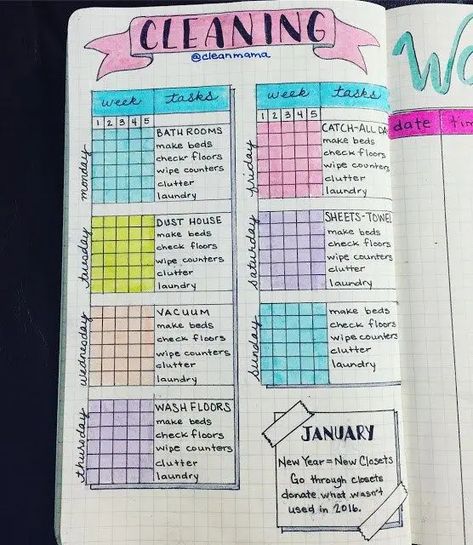 CLEANING
@cleanmama
week tasks
1 2 3 4 5
monday
BATHROOMS
make beds
check floors
wipe counters
clutter
laundry
tuesday
DUST HOUSE
make beds
check floors
wipe counters
clutter
laundry
wednesday
VACUUM
make beds
check floors
wipe counters
clutter
laundry
thursday
WASH FLOORS
make beds
check floors
wipe counters
clutter
laundry
week tasks
1 2 3 4 5
friday
CATCH-ALL DAY
make beds
check floors
wipe counters
clutter
laundry
saturday
SHEETS-TOWEL
make beds
check floors
wipe counters
clutter
laundry
sunday
make beds
check floors
wipe counters
clutter
laundry
JANUARY
New Year = New Closets
Go through closets
donate what wasn't
used in 2016.
Wo
date tim